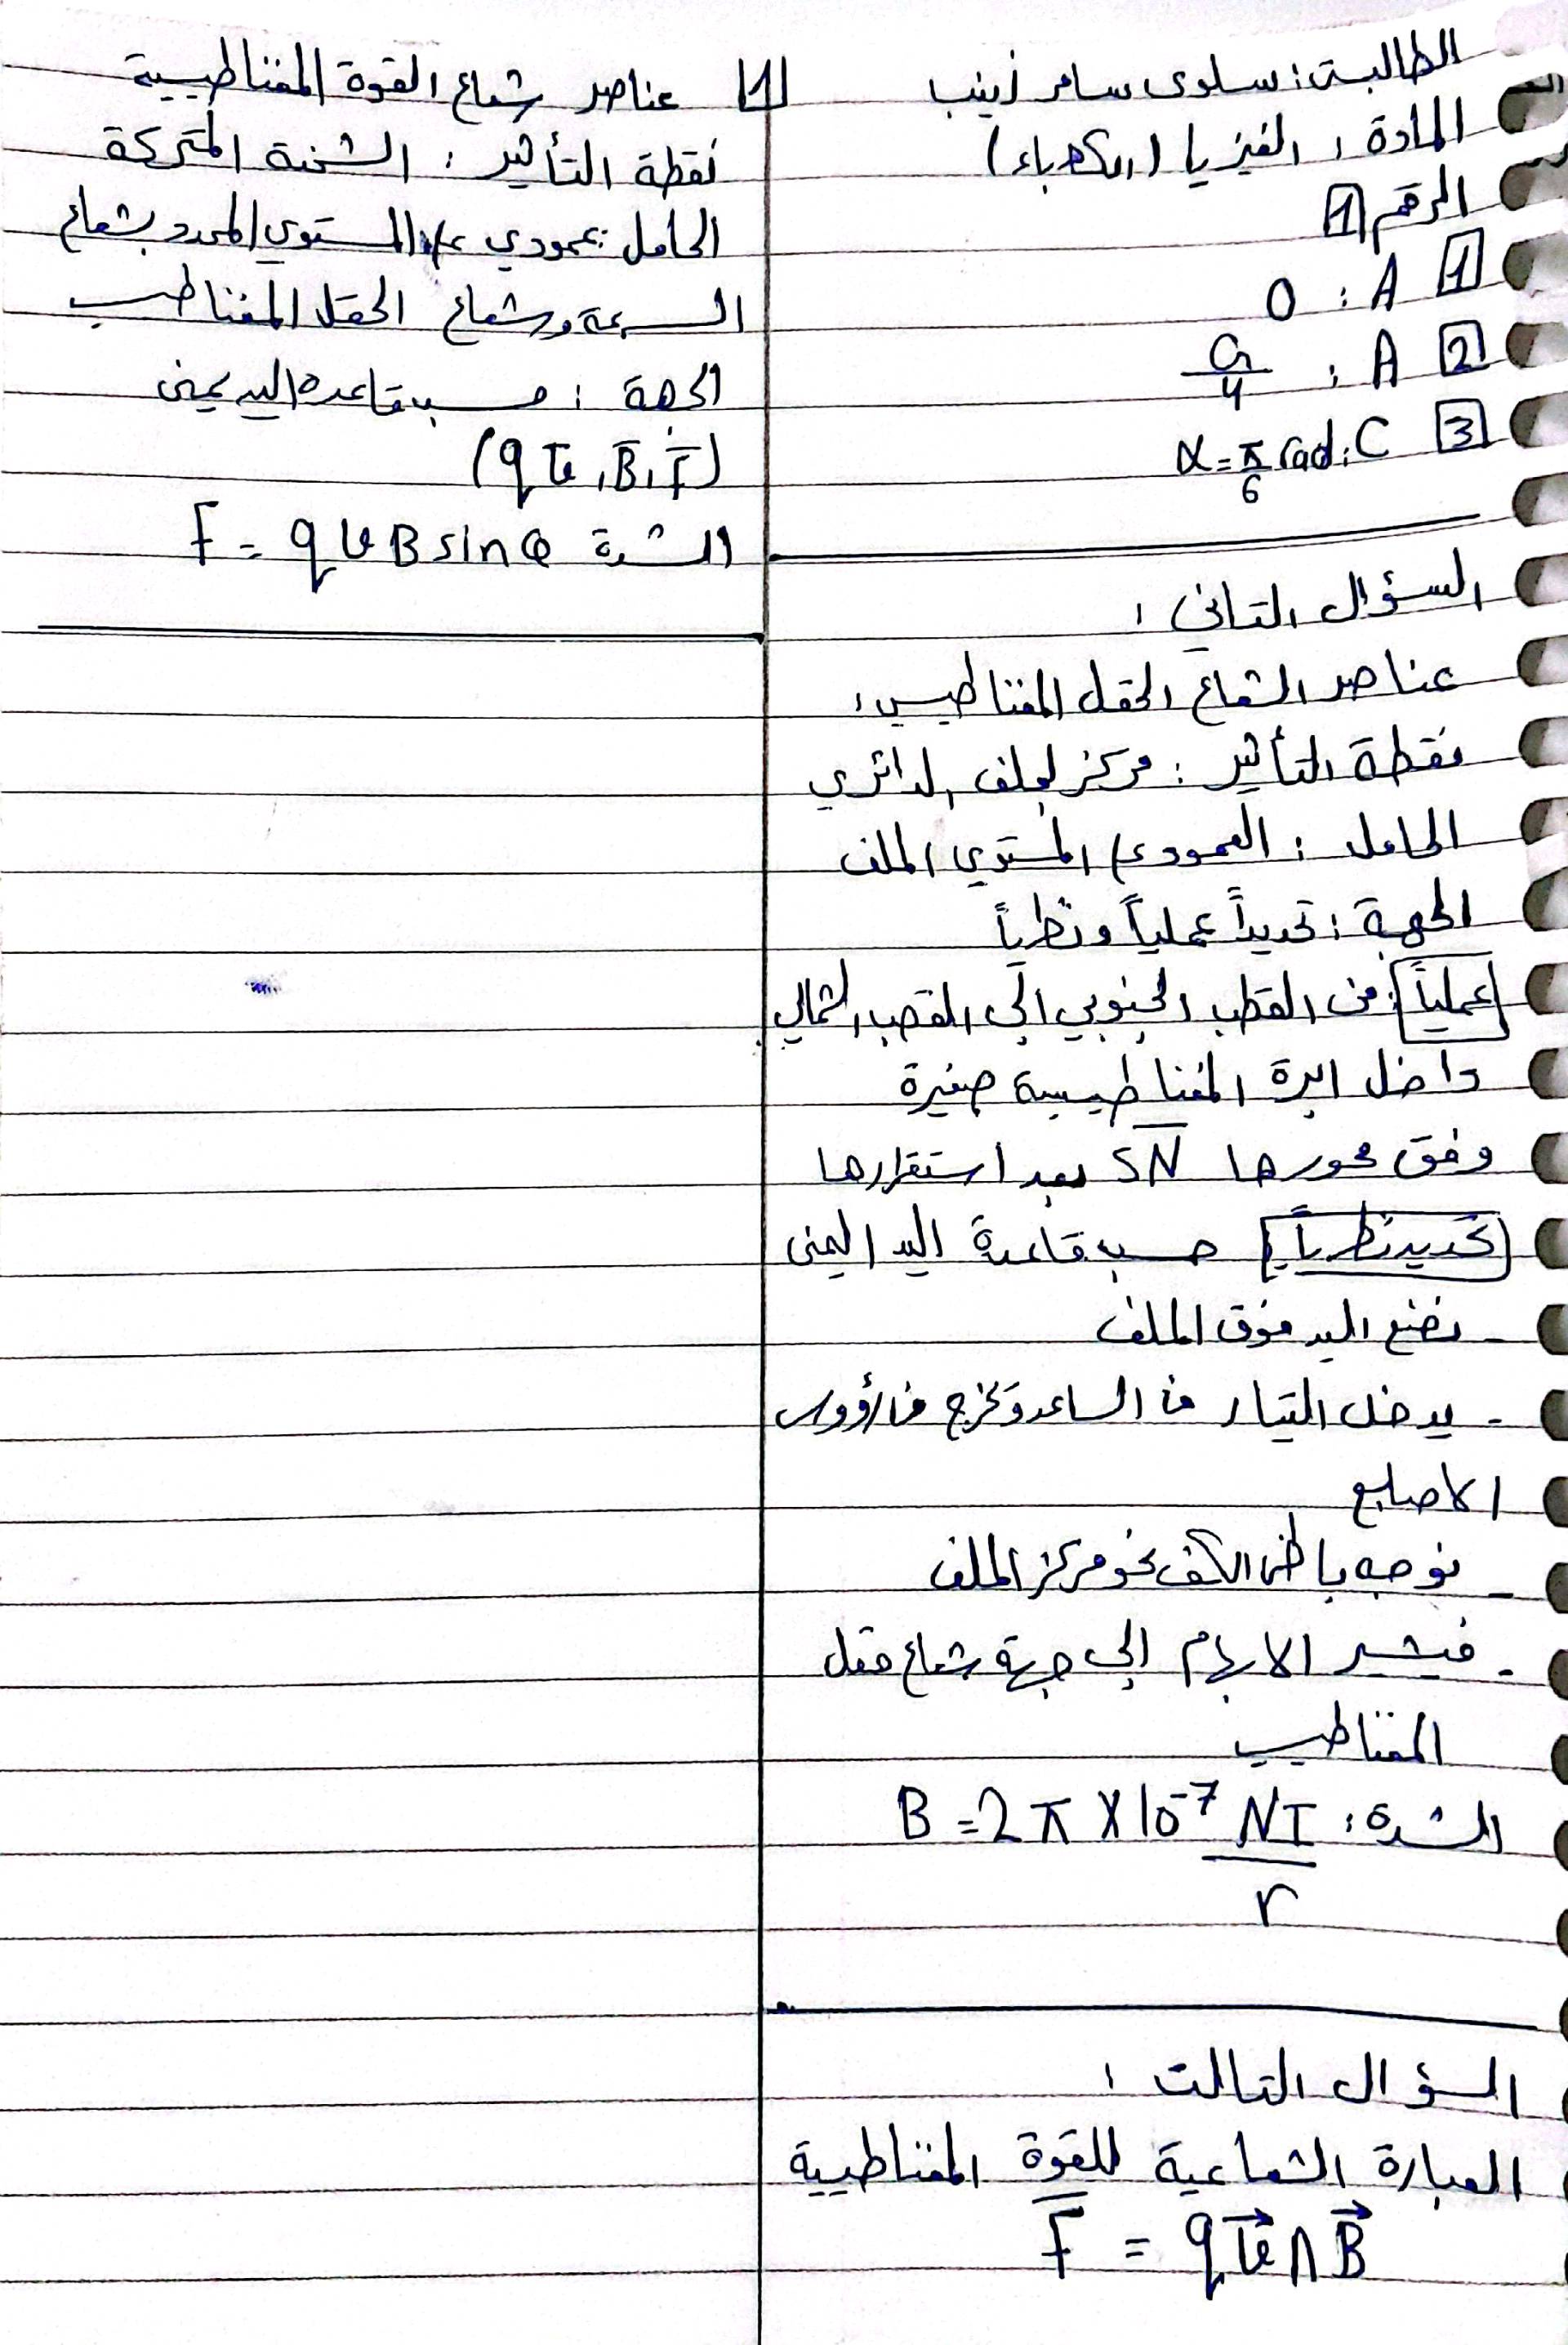 الطالبة: سلوى سامر زينب
المادة: الفيزيا (الكهرباء)
الرقم 1
1 A : 0
2 A :
3 C : α = π/6 rad
السؤال التاني:
عناصر الشعاع الحقل المغناطيسي:
نقطة التأثير: مركز لملف الدائري
الحامل: العمودي المستوي الملف
الجهة: تحديداً عملياً ونظرياً
عملياً: من القطب الجنوبي الى القطب الشمالي
داخل ابرة المغناطيسية صغيرة
وفق محورها SN بعد استقرارها
تحديد نظرياً: حسب قاعدة اليد اليمنى
- نضع اليد فوق الملف
- يدخل التيار من الساعد وتخرج من رؤوس
الاصابع
- نوجه باطن الكف نحو مركز الملف
- فيشير الابهام الى جهة شعاع حقل
المغناطيسي
الشدة: B = 2π × 10⁻⁷ NI/r
السؤال التالت:
العبارة الشعاعية للقوة المغناطيسية
F = q v⃗ ∧ B⃗
1 عناصر شعاع القوة المغناطيسية
نقطة التأثير: الشحنة المتحركة
الحامل: عمودي على المستوي المحدد بشعاع
السرعة وشعاع الحقل المغناطيسي
الجهة: حسب قاعدة اليد يمنى
(qv, B, F)
الشدة F = q v B sin θ